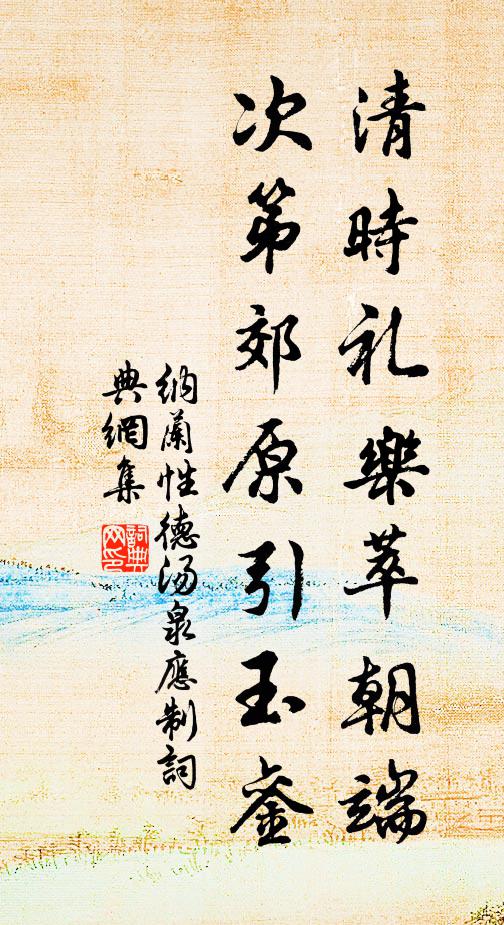 清時礼樂萃朝端
次第郊原引玉銮
納蘭性德湯泉應制詞
典網集
詞典
网印